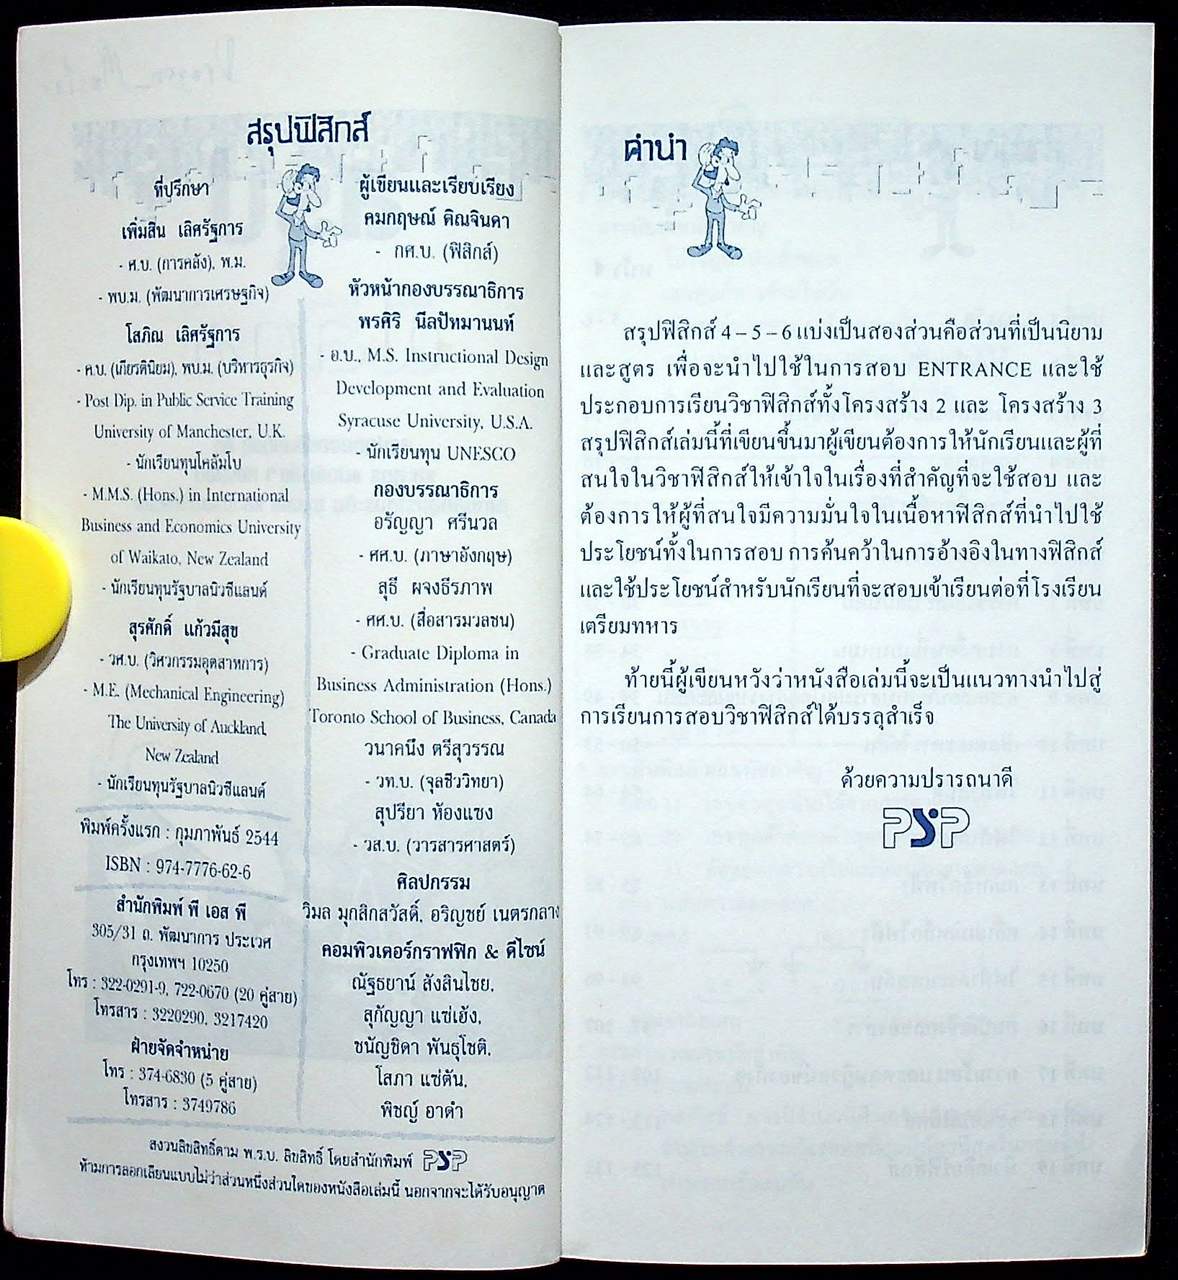 สรุปฟิสิกส์
ที่ปรึกษา
เพิ่มสิน เลิศรัฐการ
- ศ.บ. (การคลัง), พ.ม.
- พบ.ม. (พัฒนาการเศรษฐกิจ)
โสภิณ เลิศรัฐการ
- ค.บ. (เกียรตินิยม), พบ.ม. (บริหารธุรกิจ)
- Post Dip. in Public Service Training
University of Manchester, U.K.
- นักเรียนทุนโคลัมโบ
- M.M.S. (Hons.) in International
Business and Economics University
of Waikato, New Zealand
- นักเรียนทุนรัฐบาลนิวซีแลนด์
สุรศักดิ์ แก้วมีสุข
- วศ.บ. (วิศวกรรมอุตสาหการ)
- M.E. (Mechanical Engineering)
The University of Auckland,
New Zealand
- นักเรียนทุนรัฐบาลนิวซีแลนด์
พิมพ์ครั้งแรก : กุมภาพันธ์ 2544
ISBN : 974-7776-62-6
สำนักพิมพ์ พี เอส พี
305/31 ถ. พัฒนาการ ประเวศ
กรุงเทพฯ 10250
โทร : 322-0291-9, 722-0670 (20 คู่สาย)
โทรสาร : 3220290, 3217420
ฝ่ายจัดจำหน่าย
โทร : 374-6830 (5 คู่สาย)
โทรสาร : 3749786
ผู้เขียนและเรียบเรียง
คมกฤษณ์ ติณจินดา
- กศ.บ. (ฟิสิกส์)
หัวหน้ากองบรรณาธิการ
พรศิริ นีลปัทมานนท์
- อ.บ., M.S. Instructional Design
Development and Evaluation
Syracuse University, U.S.A.
- นักเรียนทุน UNESCO
กองบรรณาธิการ
อรัญญา ศรีนวล
- ศศ.บ. (ภาษาอังกฤษ)
สุธี ผจงธีรภาพ
- ศศ.บ. (สื่อสารมวลชน)
- Graduate Diploma in
Business Administration (Hons.)
Toronto School of Business, Canada
วนาคนึง ตรีสุวรรณ
- วท.บ. (จุลชีววิทยา)
สุปรียา ห้องแซง
- วส.บ. (วารสารศาสตร์)
ศิลปกรรม
วิมล มุกสิกสวัสดิ์, อริญชย์ เนตรกลาง
คอมพิวเตอร์กราฟฟิก & ดีไซน์
ณัฐธยาน์ สังสินไชย,
สุกัญญา แซ่เฮ้ง,
ชนัญชิดา พันธุโชติ,
โสภา แซ่ตัน,
พิชญ์ อาดำ
สงวนลิขสิทธิ์ตาม พ.ร.บ. ลิขสิทธิ์ โดยสำนักพิมพ์ PSP
ห้ามการลอกเลียนแบบไม่ว่าส่วนหนึ่งส่วนใดของหนังสือเล่มนี้ นอกจากจะได้รับอนุญาต
คำนำ
สรุปฟิสิกส์ 4 – 5 – 6 แบ่งเป็นสองส่วนคือส่วนที่เป็นนิยาม
และสูตร เพื่อจะนำไปใช้ในการสอบ ENTRANCE และใช้
ประกอบการเรียนวิชาฟิสิกส์ทั้งโครงสร้าง 2 และ โครงสร้าง 3
สรุปฟิสิกส์เล่มนี้ที่เขียนขึ้นมาผู้เขียนต้องการให้นักเรียนและผู้ที่
สนใจในวิชาฟิสิกส์ให้เข้าใจในเรื่องที่สำคัญที่จะใช้สอบ และ
ต้องการให้ผู้ที่สนใจมีความมั่นใจในเนื้อหาฟิสิกส์ที่นำไปใช้
ประโยชน์ทั้งในการสอบ การค้นคว้าในการอ้างอิงในทางฟิสิกส์
และใช้ประโยชน์สำหรับนักเรียนที่จะสอบเข้าเรียนต่อที่โรงเรียน
เตรียมทหาร
ท้ายนี้ผู้เขียนหวังว่าหนังสือเล่มนี้จะเป็นแนวทางนำไปสู่
การเรียนการสอบวิชาฟิสิกส์ได้บรรลุสำเร็จ
ด้วยความปรารถนาดี
PSP